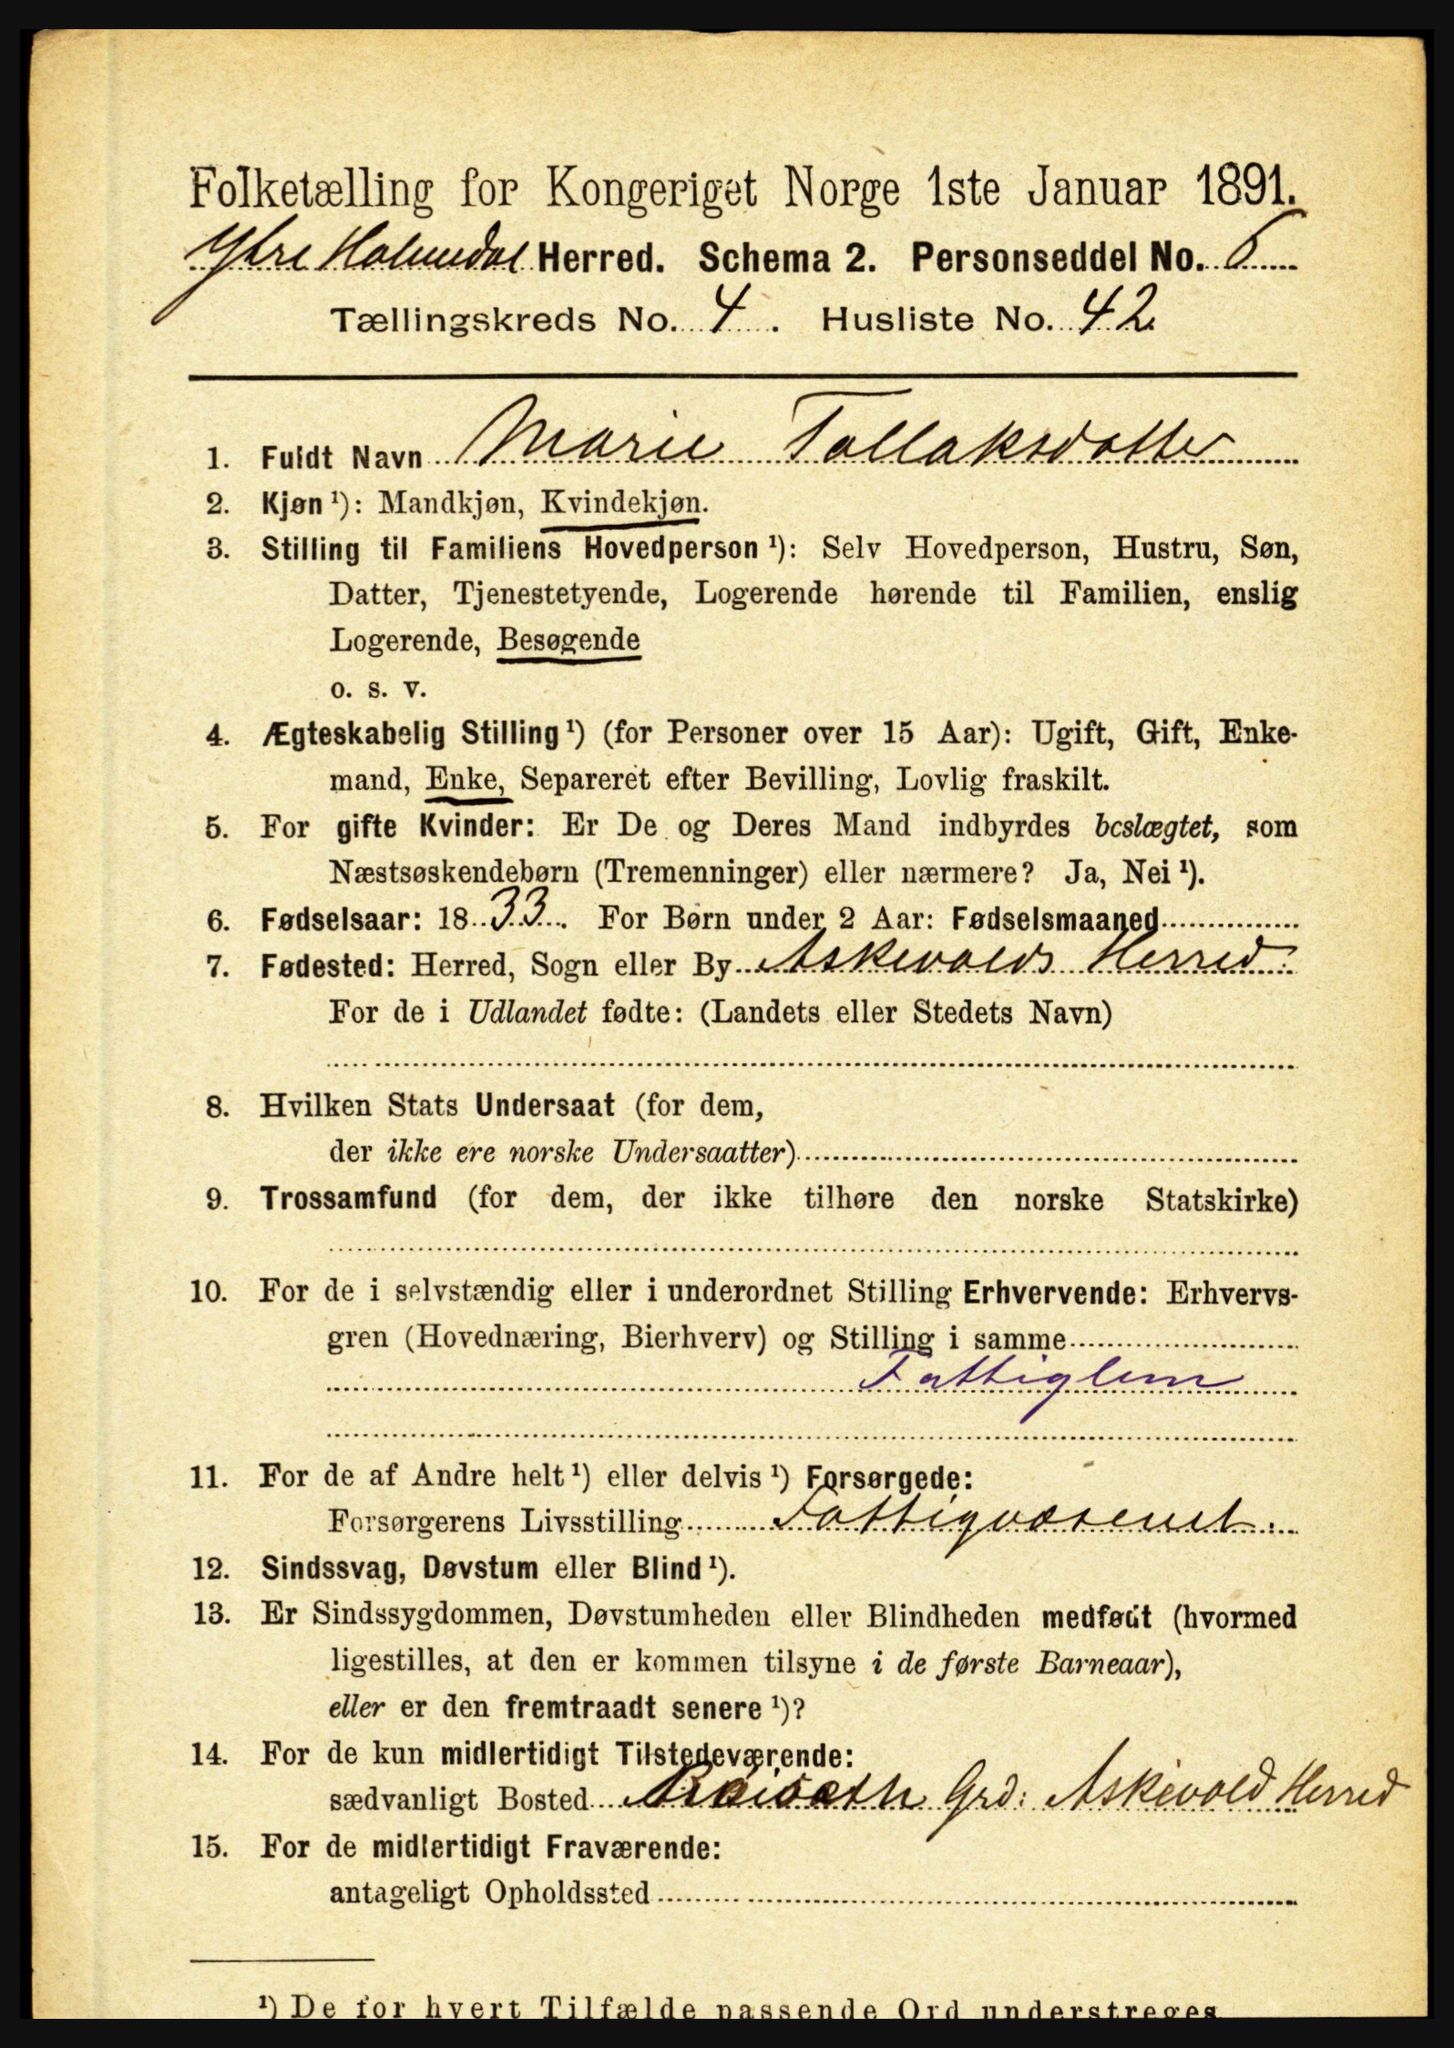 Folketælling for Kongeriget Norge 1ste Januar 1891.
Ytre Holmedal Herred. Schema 2. Personseddel No. 6
Tællingskreds No. 4. Husliste No. 42
1. Fuldt Navn Marie Tollaksdotter
2. Kjøn ¹): Mandkjøn, Kvindekjøn.
3. Stilling til Familiens Hovedperson ¹): Selv Hovedperson, Hustru, Søn,
Datter, Tjenestetyende, Logerende hørende til Familien, enslig
Logerende, Besøgende
o. s. v.
4. Ægteskabelig Stilling ¹) (for Personer over 15 Aar): Ugift, Gift, Enke-
mand, Enke, Separeret efter Bevilling, Lovlig fraskilt.
5. For gifte Kvinder: Er De og Deres Mand indbyrdes beslægtet, som
Næstsøskendebørn (Tremenninger) eller nærmere? Ja, Nei ¹).
6. Fødselsaar: 1833. For Børn under 2 Aar: Fødselsmaaned
7. Fødested: Herred, Sogn eller By Askevolds Herred.
For de i Udlandet fødte: (Landets eller Stedets Navn)
8. Hvilken Stats Undersaat (for dem,
der ikke ere norske Undersaatter)
9. Trossamfund (for dem, der ikke tilhøre den norske Statskirke)
10. For de i selvstændig eller i underordnet Stilling Erhvervende: Erhvervs-
gren (Hovednæring, Bierhverv) og Stilling i samme
Fattiglem
11. For de af Andre helt ¹) eller delvis ¹) Forsørgede:
Forsørgerens Livsstilling Fattigvæsenet.
12. Sindssvag, Døvstum eller Blind ¹).
13. Er Sindssygdommen, Døvstumheden eller Blindheden medfødt (hvormed
ligestilles, at den er kommen tilsyne i de første Barneaar),
eller er den fremtraadt senere ¹)?
14. For de kun midlertidigt Tilstedeværende:
sædvanligt Bosted Grd: Askevold Herred
15. For de midlertidigt Fraværende:
antageligt Opholdssted
¹) De for hvert Tilfælde passende Ord understreges